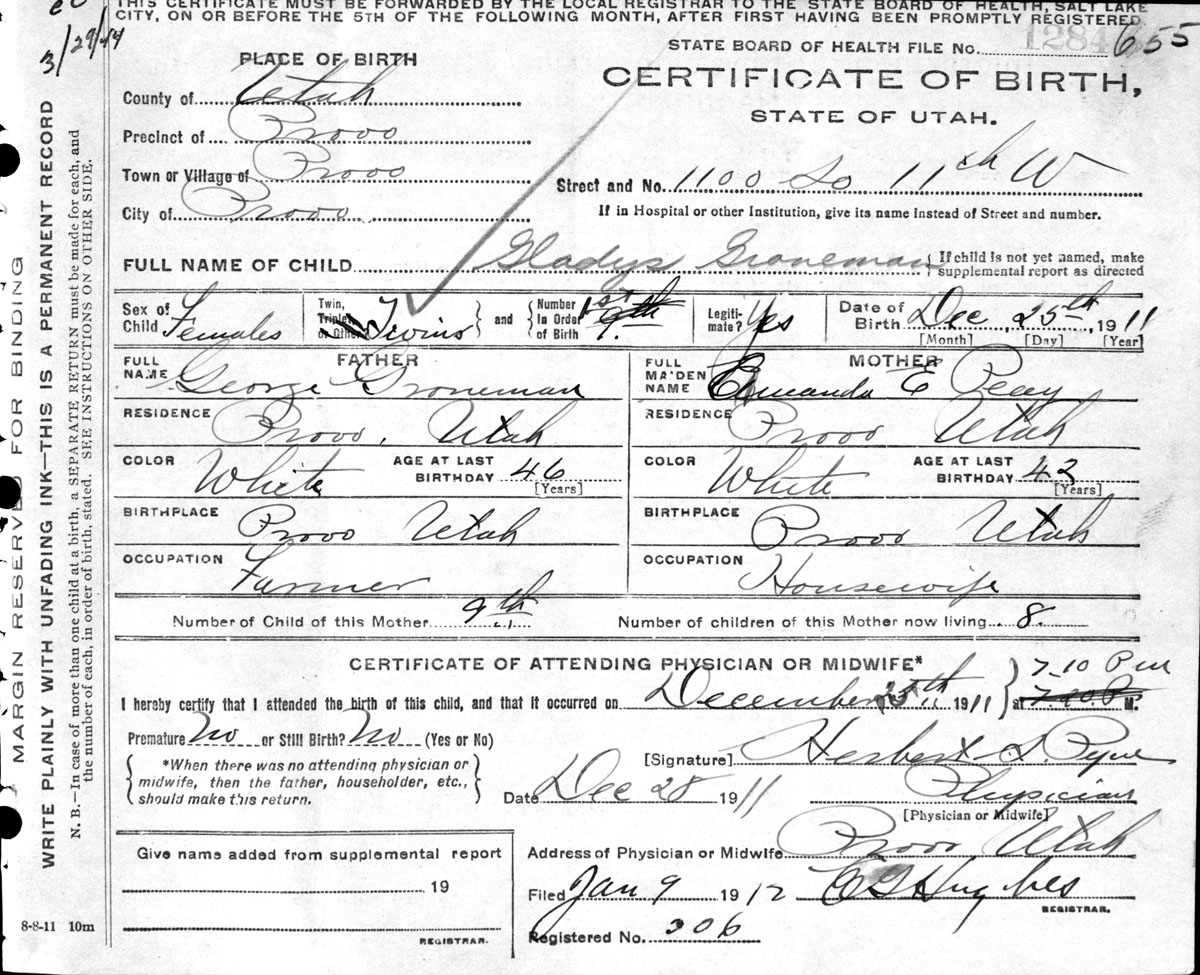 THIS CERTIFICATE MUST BE FORWARDED BY THE LOCAL REGISTRAR TO THE STATE BOARD OF HEALTH, SALT LAKE
CITY, ON OR BEFORE THE 5TH OF THE FOLLOWING MONTH, AFTER FIRST HAVING BEEN PROMPTLY REGISTERED.
3/29/44
STATE BOARD OF HEALTH FILE No. 1284 655
PLACE OF BIRTH
CERTIFICATE OF BIRTH,
STATE OF UTAH.
County of Utah
Precinct of Provo
Town or Village of Provo
Street and No. 1100 So 11th W
City of Provo
If in Hospital or other Institution, give its name instead of Street and number.
FULL NAME OF CHILD Gladys Groneman { If child is not yet named, make
supplemental report as directed
Sex of Child Females
Twin, Triplet, or Other? Twins } and { Number In Order of Birth 1st 9th
Legitimate? Yes
Date of Birth Dec, 25th, 1911
[Month] [Day] [Year]
FATHER
FULL NAME George Groneman
RESIDENCE Provo, Utah
COLOR White AGE AT LAST BIRTHDAY 46
[Years]
BIRTHPLACE Provo Utah
OCCUPATION Farmer
MOTHER
FULL MAIDEN NAME Amanda E Peay
RESIDENCE Provo Utah
COLOR White AGE AT LAST BIRTHDAY 42
[Years]
BIRTHPLACE Provo Utah
OCCUPATION Housewife
Number of Child of this Mother 9th Number of children of this Mother now living 8
CERTIFICATE OF ATTENDING PHYSICIAN OR MIDWIFE*
I hereby certify that I attended the birth of this child, and that it occurred on December 25th 1911 } at 7.10 P m 7.20.P. M.
Premature No or Still Birth? No (Yes or No)
{ *When there was no attending physician or
midwife, then the father, householder, etc.,
should make this return. }
[Signature] Herbert S. Pyne
Date Dec 28 1911 Physician
[Physician or Midwife]
Address of Physician or Midwife Provo Utah
Filed Jan 9 1912 C G Hughes
REGISTRAR.
Registered No. 306
Give name added from supplemental report
19
REGISTRAR.
8-8-11 10m
MARGIN RESERVED FOR BINDING
WRITE PLAINLY WITH UNFADING INK—THIS IS A PERMANENT RECORD
N. B.—In case of more than one child at a birth, a SEPARATE RETURN must be made for each, and
the number of each, in order of birth, stated. SEE INSTRUCTIONS ON OTHER SIDE.